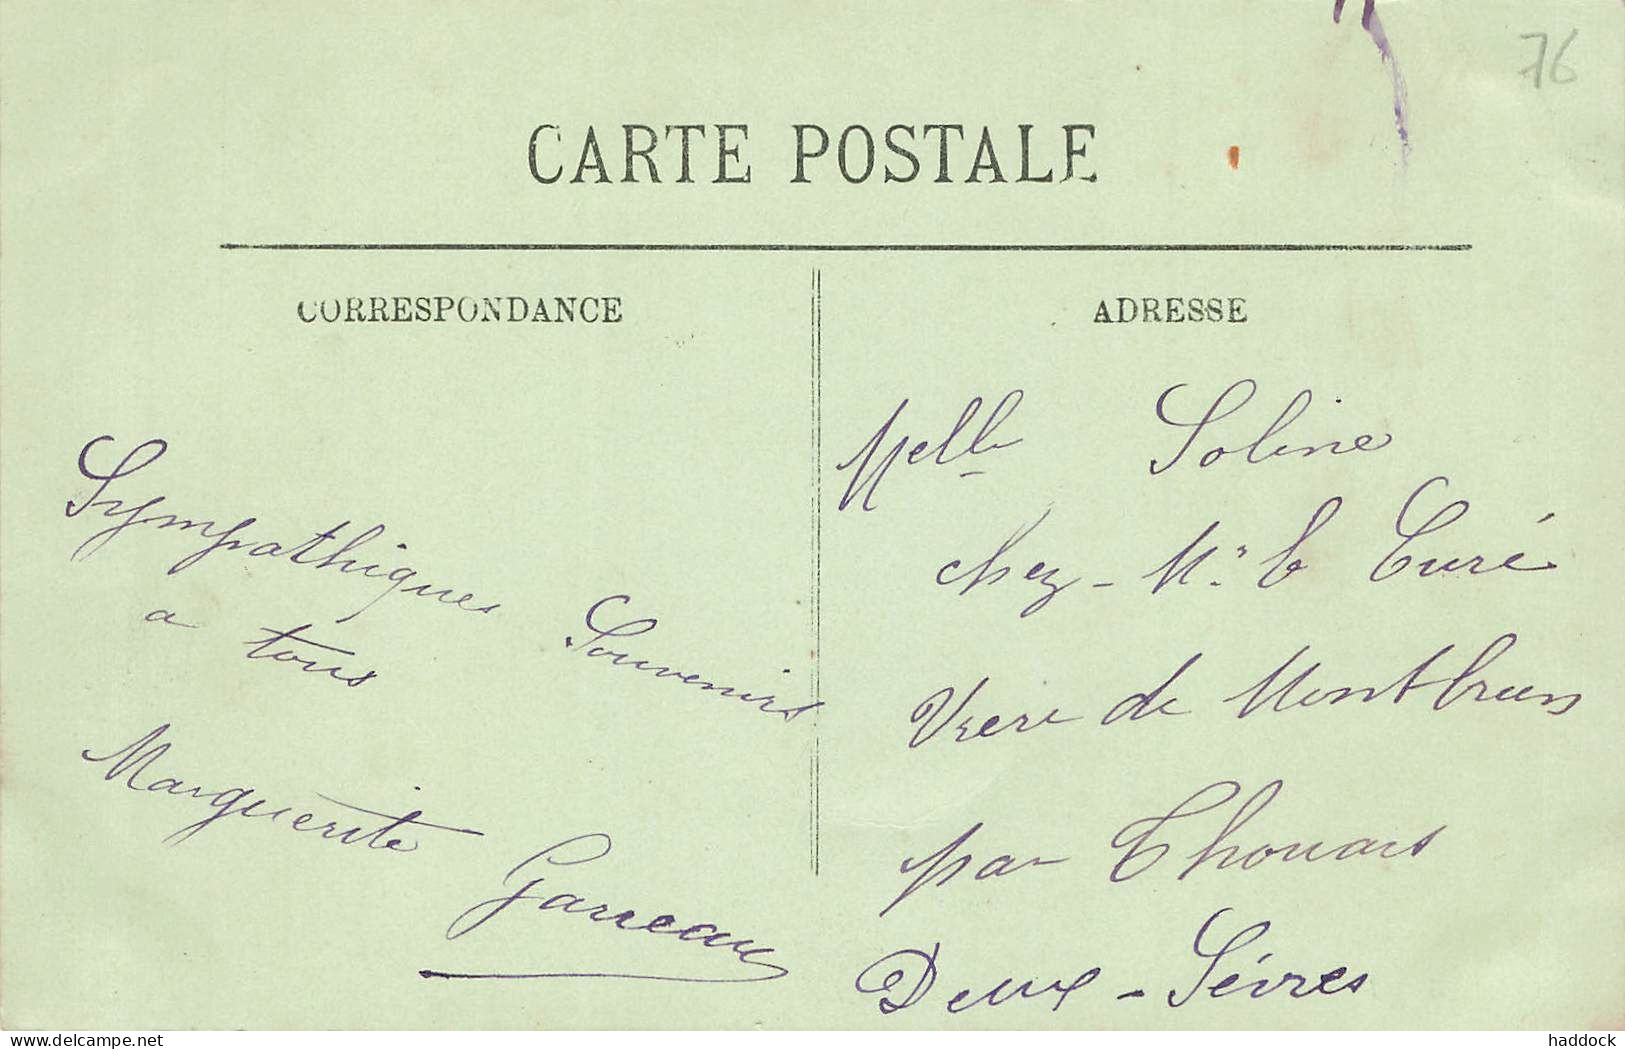 76
CARTE POSTALE
CORRESPONDANCE
Sympathiques Souvenirs
a tous
Marguerite
Garreau
ADRESSE
Melle Soline
chez - Mr le Curé
de Montbrun
par Thouars
Deux-Sèvres
delcampe.net
haddock